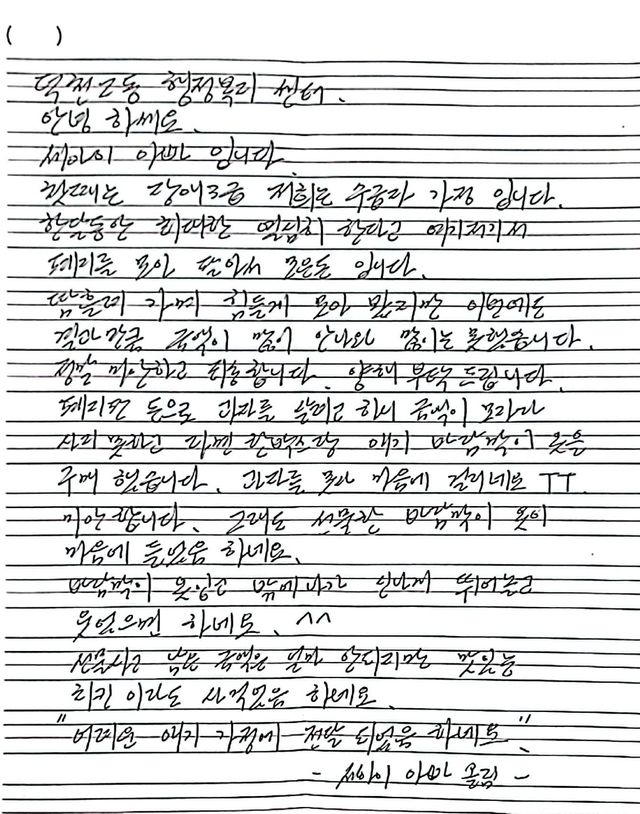 ( )
덕천2동 행정복지 센터.
안녕 하세요.
세아이 아빠 입니다.
첫째는 장애3급 저희는 수급자 가정 입니다.
한달동안 최대한 열심히 한다고 여기저기서
폐지를 모아 팔아서 모은돈 입니다.
땀흘려 가며 힘들게 모아 봤지만 이번에도
결과만큼 금액이 많이 안나와 많이는 못했습니다.
정말 미안하고 죄송합니다. 양해 부탁 드립니다.
폐지판 돈으로 과자를 살려고 하니 금액이 모자라
사지 못하고 라면 한박스랑 애기 바람막이 옷을
구매 했습니다. 과자를 못사 마음에 걸리네요 ㅜㅜ.
미안합니다. 그래도 선물한 바람막이 옷이
마음에 들었음 하네요.
바람막이 옷입고 밖에나가 신나게 뛰어놀고
웃었으면 하네요. ^^
선물사고 남은 금액은 얼마 안되지만 맛있는
치킨 이라도 사먹었음 하네요.
"어려운 애기 가정에 전달 되었음 하네요".
- 세아이 아빠 올림 -